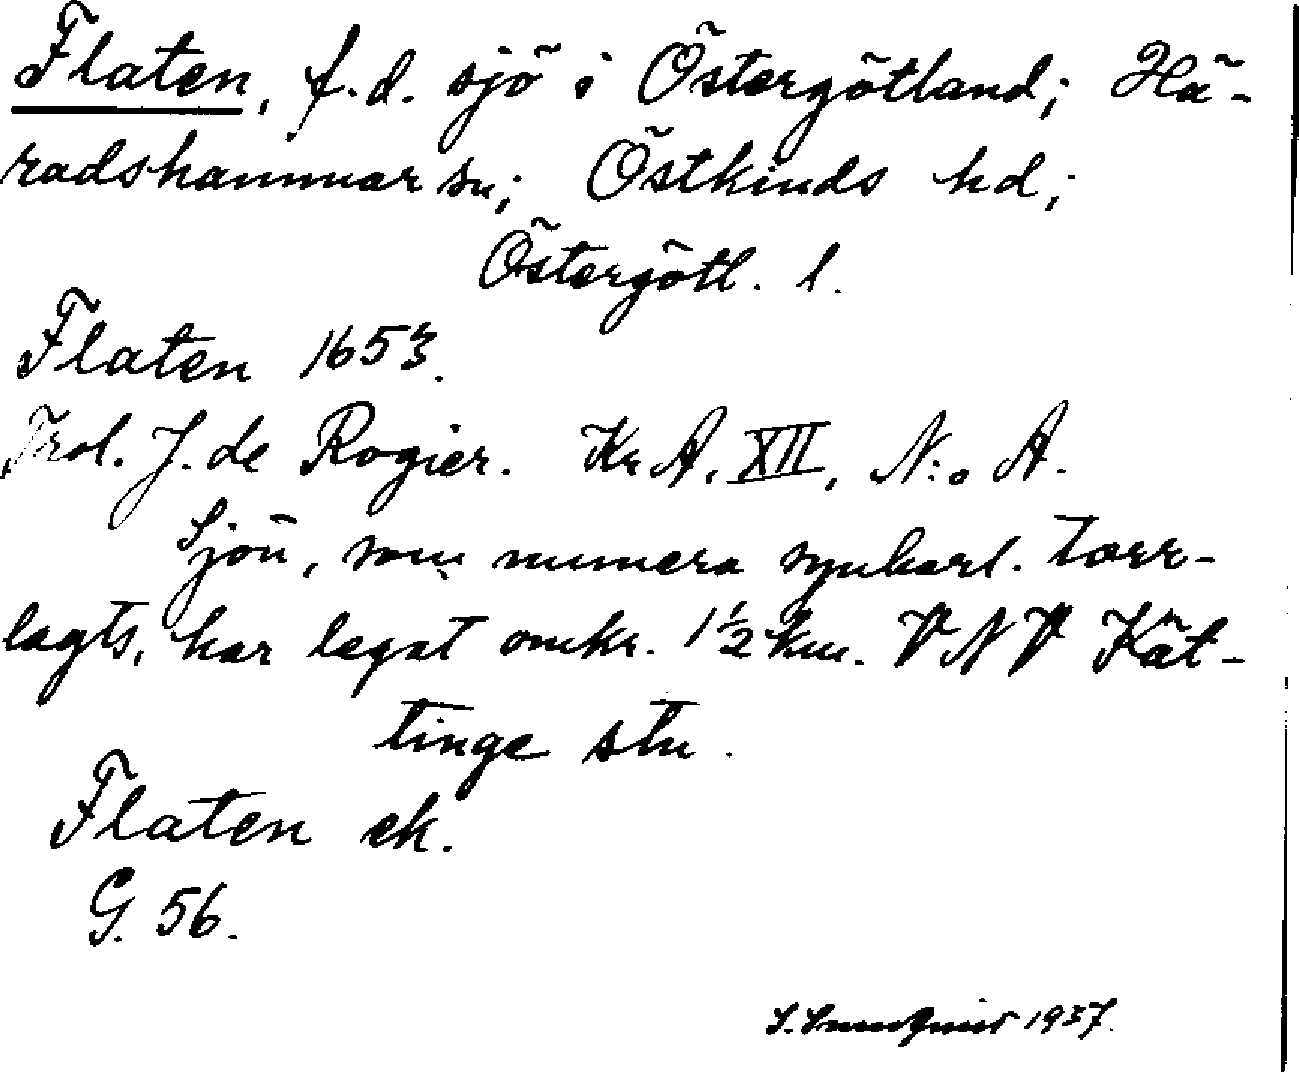 Flaten, f.d. sjö i Östergötland; Hä-
radshammar sn; Östkinds hd;
Östergötl. l.
Flaten 1653.
Frol. J. de Rogier. Kr A. XII, N:o A.
Sjön, som numera synbarl. torr-
lagts, har legat omkr. 1½ km. VNV Kät-
tinge stn.
Flaten ek.
G. 56.
1937.